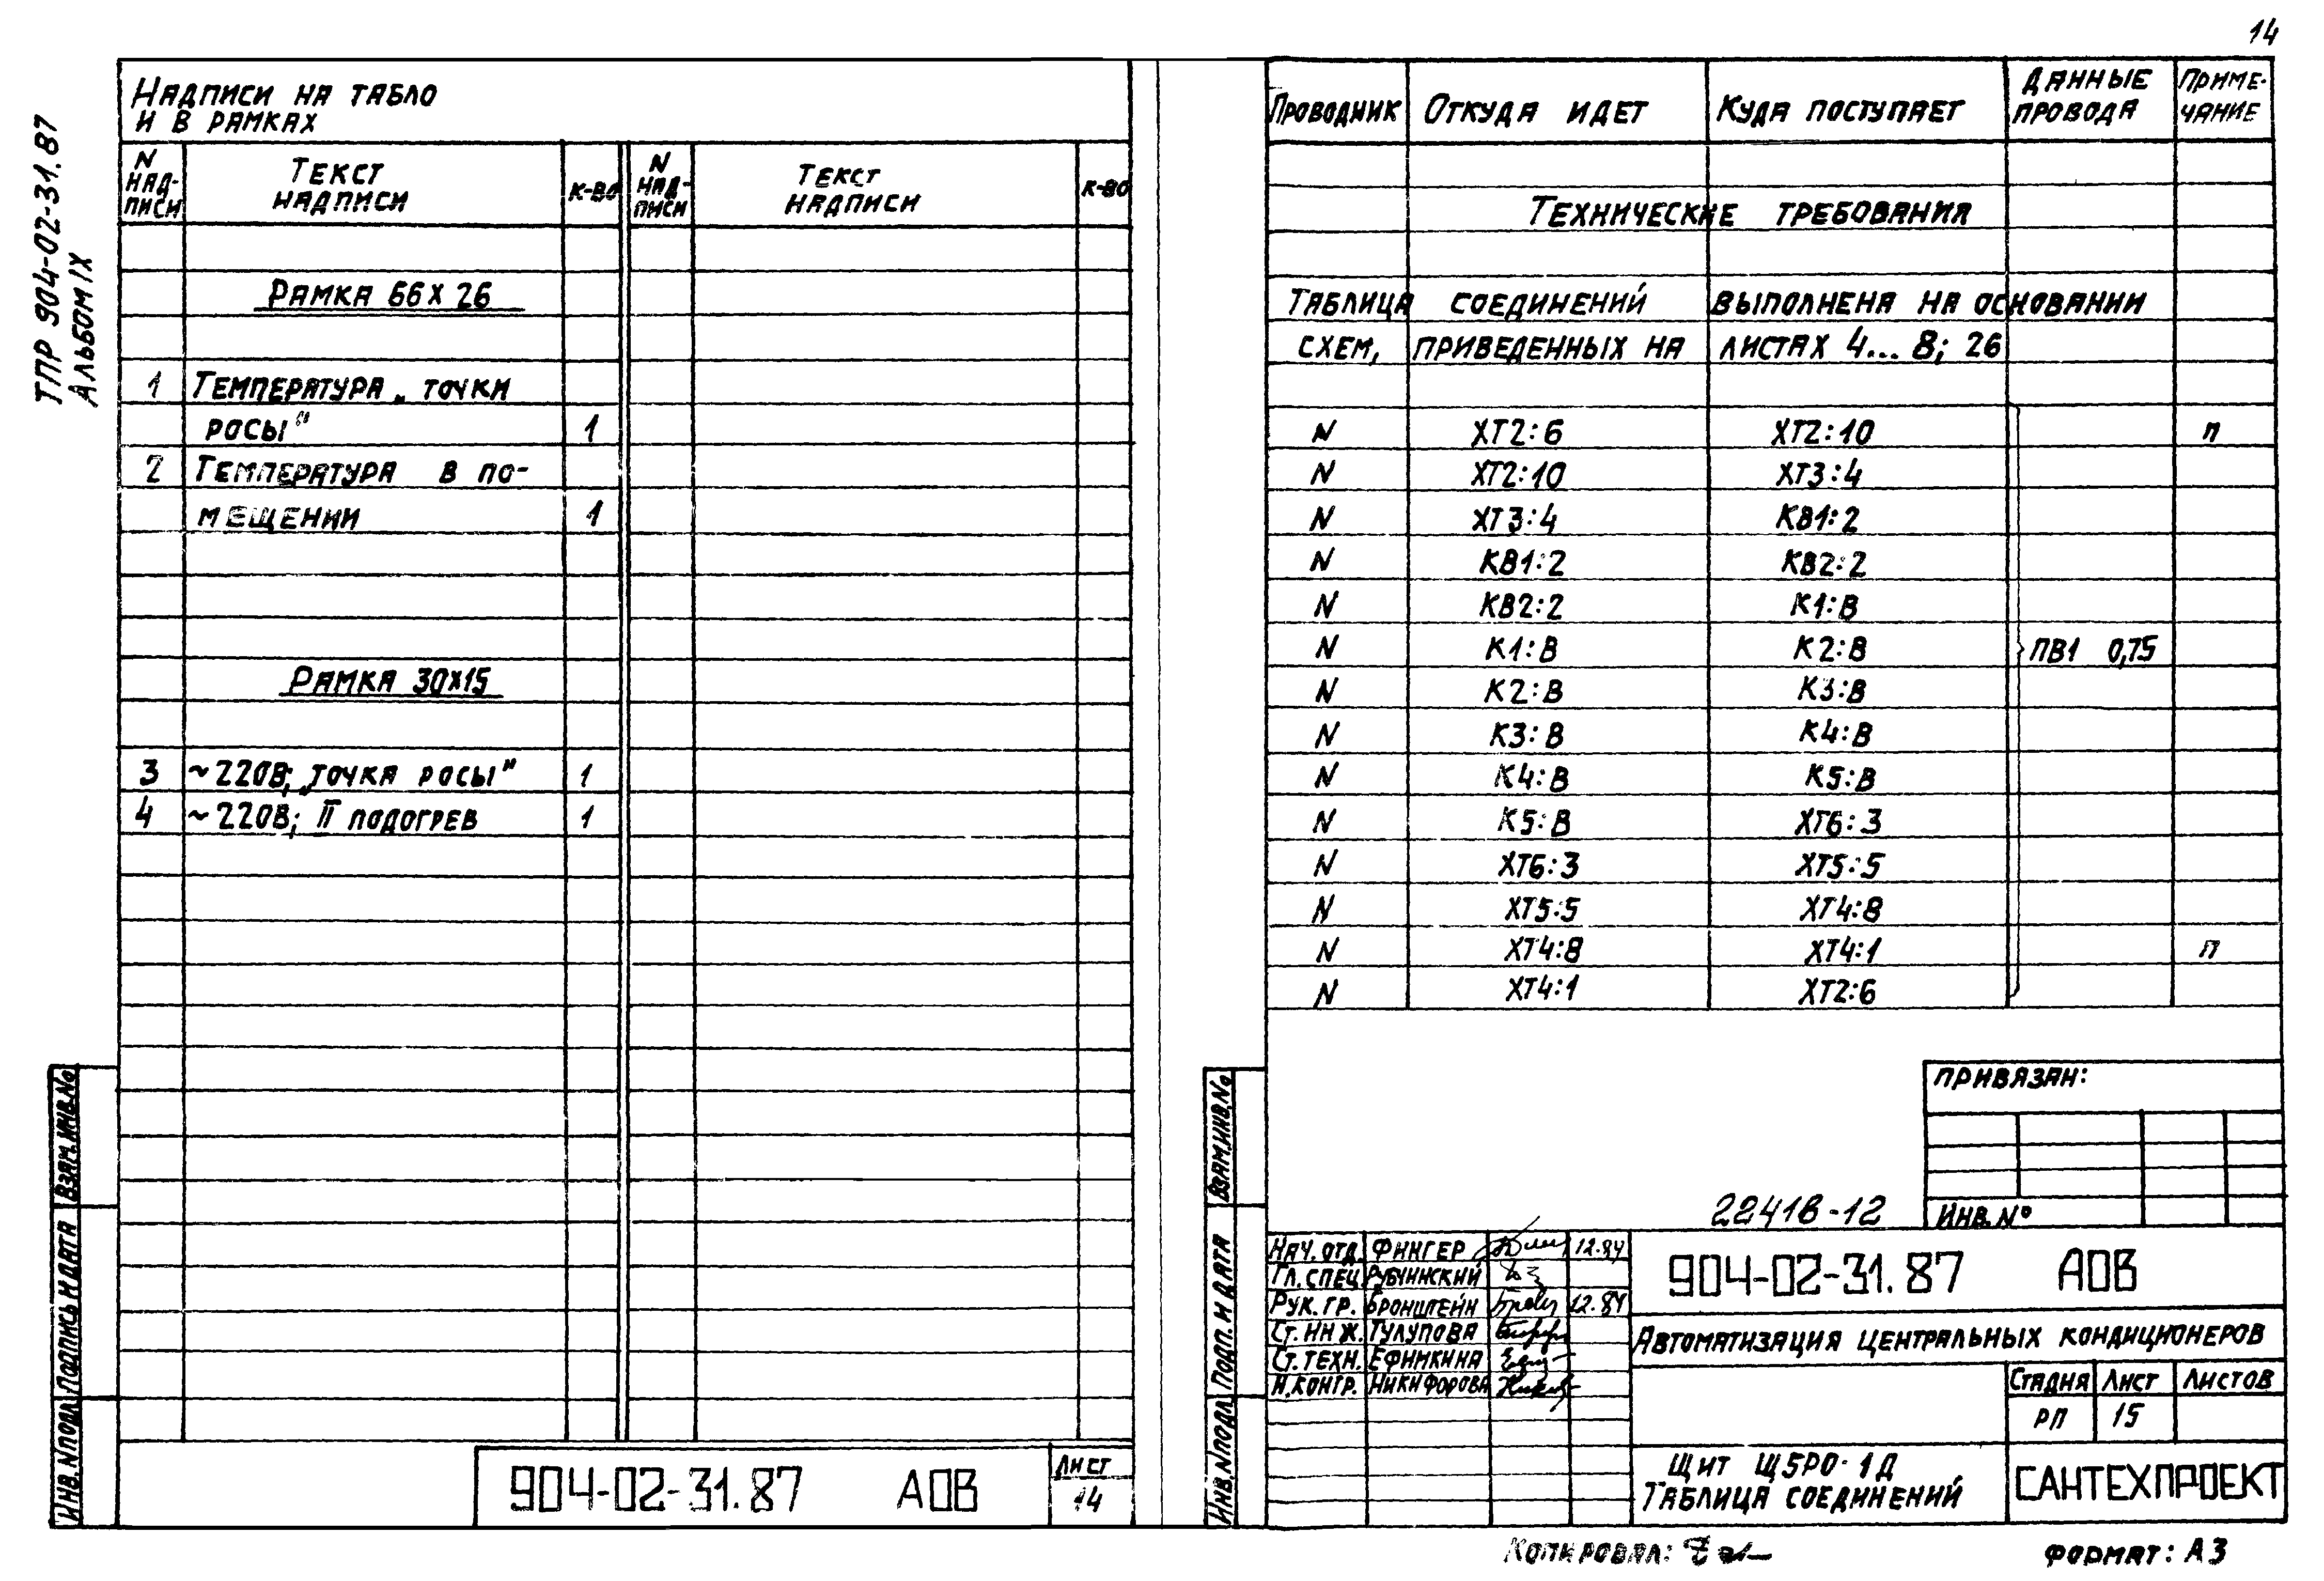 14
ТПР 904-02-31.87
Альбом IX
Надписи на табло
и в рамках
N надписи Текст надписи к-во N надписи Текст надписи к-во
Рамка 66х26
1 Температура „точки
росы" 1
2 Температура в по-
мещении 1
Рамка 30х15
3 ~220В; „точка росы" 1
4 ~220В; II подогрев 1
Взам. инв. №
Подпись и дата
Инв. N подл.
904-02-31.87 АОВ
Лист
14
Проводник Откуда идет Куда поступает Данные провода Приме-чание
Технические требования
Таблица соединений выполнена на основании
схем, приведенных на листах 4... 8; 26
N ХТ2:6 ХТ2:10 п
N ХТ2:10 ХТ3:4
N ХТ3:4 КВ1:2
N КВ1:2 КВ2:2
N КВ2:2 К1:В
N К1:В К2:В ПВ1 0,75
N К2:В К3:В
N К3:В К4:В
N К4:В К5:В
N К5:В ХТ6:3
N ХТ6:3 ХТ5:5
N ХТ5:5 ХТ4:8
N ХТ4:8 ХТ4:1 п
N ХТ4:1 ХТ2:6
Привязан:
Инв. №
22418-12
Взам. инв. №
Подп. и дата
Инв. N подл.
Нач. отд. Фингер 12.84
Гл. спец. Рубчинский
Рук. гр. Бронштейн 12.84
Ст. инж. Тулупова
Ст. техн. Ефимкина
Н. контр. Никифорова
904-02-31.87 АОВ
Автоматизация центральных кондиционеров
Стадия Лист Листов
РП 15
Щит Щ5РО-1Д
Таблица соединений
САНТЕХПРОЕКТ
Копировал:
Формат: А3